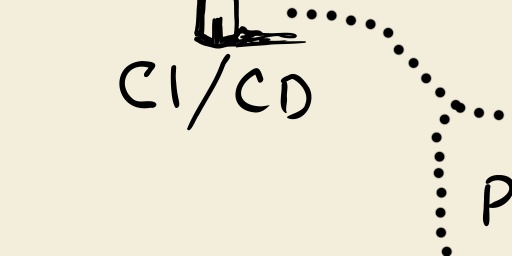 CI/CD
P